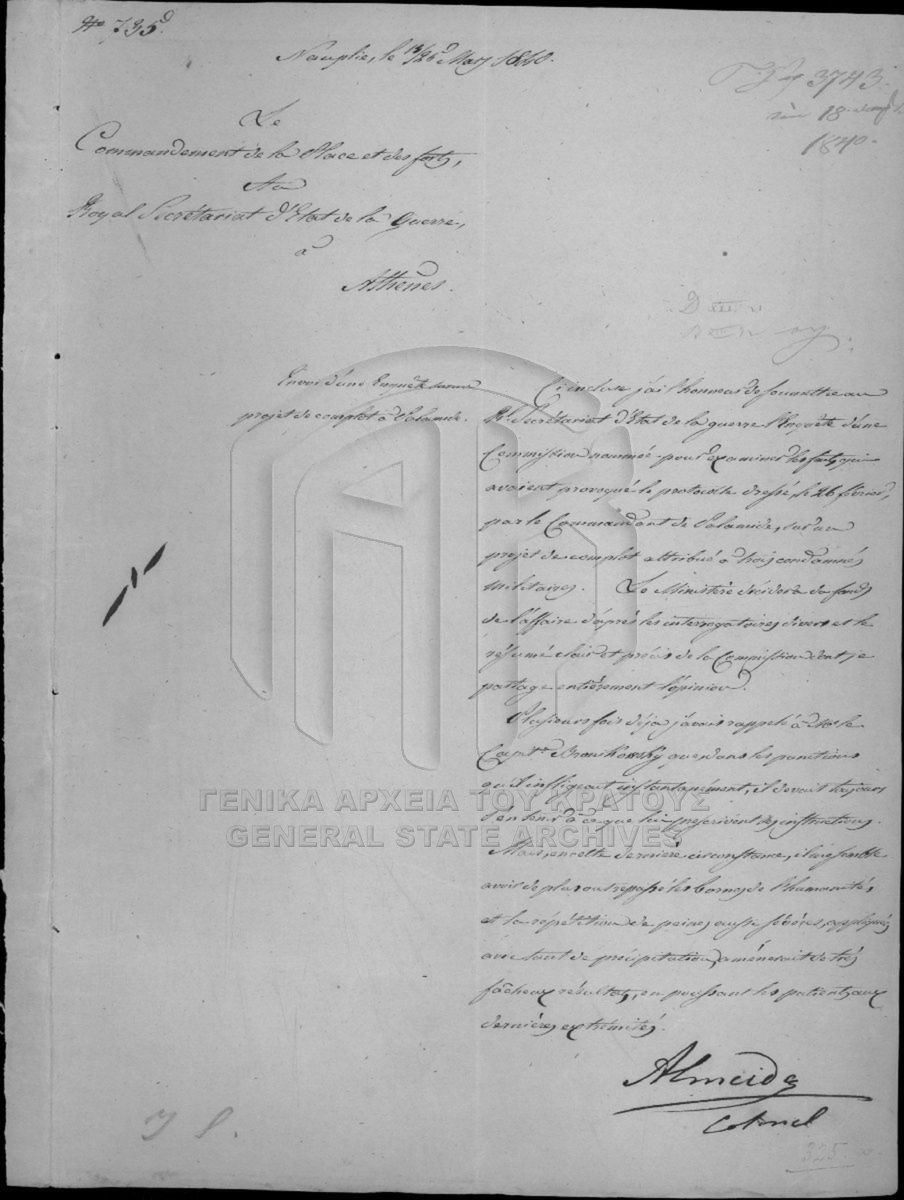 No 795.
Nauplie, le 13/25 Mars 1840.
3743
18
1840.
Le
Commandement de la Place et des forts,
Au
Royal Secrétariat d'Etat de la Guerre,
à
Athènes.
Envoi d'une Enquête sur un
projet de complot à Palamide.
Ci incluse j'ai l'honneur de soumettre au
Rl. Secrétariat d'Etat de la guerre l'Enquête d'une
Commission nommée pour examiner les faits qui
avaient provoqué le protocole dressé, le 26 février,
par le Commandant de Palamide, sur un
projet de complot attribué à trois condamnés
militaires. Le Ministère décidera du fond
de l'affaire d'après les interrogatoires divers et le
résumé clair et précis de la Commission dont je
partage entièrement l'opinion.
Plusieurs fois déja j'avais rappelé à Mr. le
Capit. Bronikowsky que dans les punitions
qu'il infligeait instantanément, il devait toujours
s'en tenir à ce que lui prescrivent les instructions.
Mais, en cette dernière circonstance, il me semble
avoir de plus outrepassé les bornes de l'humanité,
et la répétition de peines aussi sévères, appliquées
avec tant de précipitation, amènerait de très
fâcheux résultats, en poussant les patients aux
dernières extrémités.
Almeida
Colonel
325
ΓΕΝΙΚΑ ΑΡΧΕΙΑ ΤΟΥ ΚΡΑΤΟΥΣ
GENERAL STATE ARCHIVES